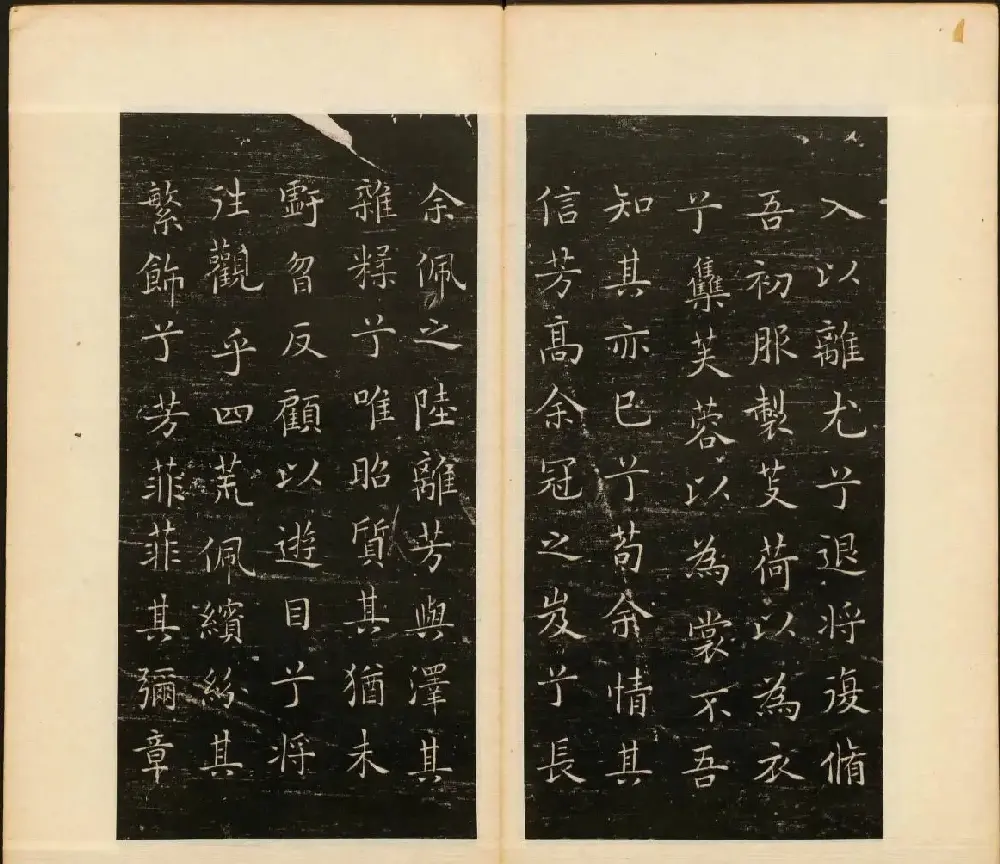 入以離尤兮退將復脩
吾初服製芰荷以為衣
兮集芙蓉以為裳不吾
知其亦已兮苟余情其
信芳高余冠之岌兮長
余佩之陸離芳與澤其
雜糅兮唯昭質其猶未
虧曶反顧以遊目兮將
往觀乎四荒佩繽紛其
繁飾兮芳菲菲其彌章